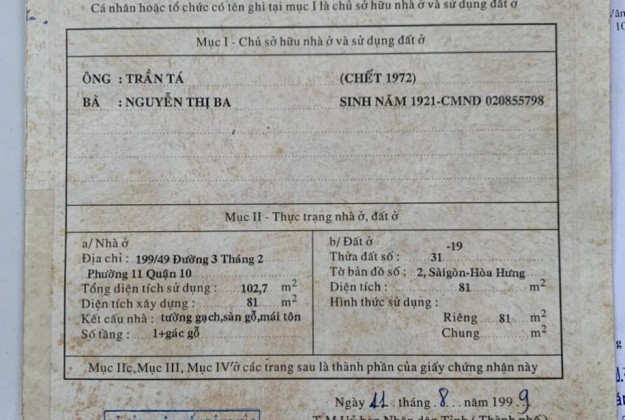 Cá nhân hoặc tổ chức có tên ghi tại mục I là chủ sở hữu nhà ở và sử dụng đất ở
Mục I - Chủ sở hữu nhà ở và sử dụng đất ở
ÔNG : TRẦN TÁ (CHẾT 1972)
BÀ : NGUYỄN THỊ BA SINH NĂM 1921-CMND 020855798
Mục II - Thực trạng nhà ở, đất ở
a/ Nhà ở
Địa chỉ : 199/49 Đường 3 Tháng 2
Phường 11 Quận 10
Tổng diện tích sử dụng : 102,7 m²
Diện tích xây dựng : 81 m²
Kết cấu nhà : tường gạch,sàn gỗ,mái tôn
Số tầng : 1+gác gỗ
b/ Đất ở -19
Thửa đất số : 31
Tờ bản đồ số : 2, Sàigòn-Hòa Hưng
Diện tích : 81 m²
Hình thức sử dụng :
Riêng 81 m²
Chung m²
Mục IIc, Mục III, Mục IV ở các trang sau là thành phần của giấy chứng nhận này
Ngày 11 tháng 8 năm 1999
T.M Uỷ ban Nhân dân Tỉnh ( Thành phố )